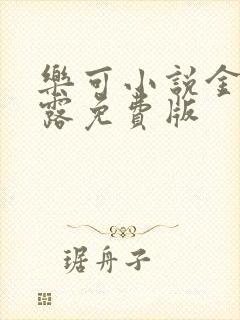 樂可小説金
露免費版
琚舟子